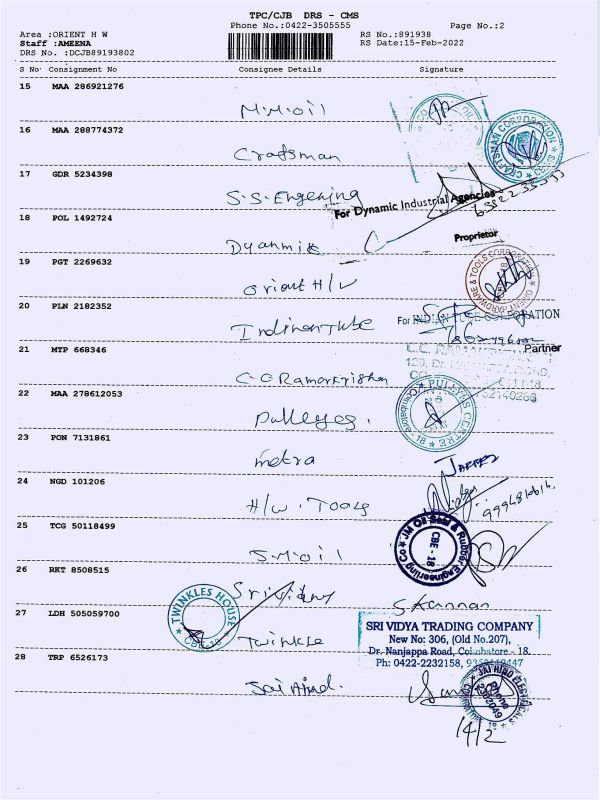 TPC/CJB DRS - CMS
Phone No.:0422-3505555 Page No.:2
Area :ORIENT H W RS No.:891938
Staff :AMEENA RS Date:15-Feb-2022
DRS No. :DCJB89193802
S No Consignment No Consignee Details Signature
15 MAA 286921276
M.M.oil
16 MAA 288774372
Craftsman
CRAFTSMAN CORPORATION
17 GDR 5234398
S.S. Engening
For Dynamic Industrial Agencies
18 POL 1492724
Dyanmic
Proprietor
19 PGT 2269632
orient H/W
ORIENT HARDWARE & TOOLS CORPORATION
20 PLN 2182352
For INDIAN TUBE CORPORATION
Indinan Tube
Partner
21 MTP 668346
C C Ramarkrishn
22 MAA 278612053
PULLEYS CENTRE
Pulleyes.
23 PON 7131861
metra
24 NGD 101206
H/W. Tools
25 TCG 50118499
JM Oil Seal & Rubber Engineering Co
CBE - 18
J.M.oil
26 RKT 8508515
Sri Vidya
S Kannan
TWINKLES HOUSE
CBE-18
27 LDH 505059700
SRI VIDYA TRADING COMPANY
New No: 306, (Old No.207),
Dr. Nanjappa Road, Coimbatore - 18.
Ph: 0422-2232158,
Twinkle
28 TRP 6526173
JAI HIND ELECTRICALS
Phone
2392049
Jai Hind.
14/2